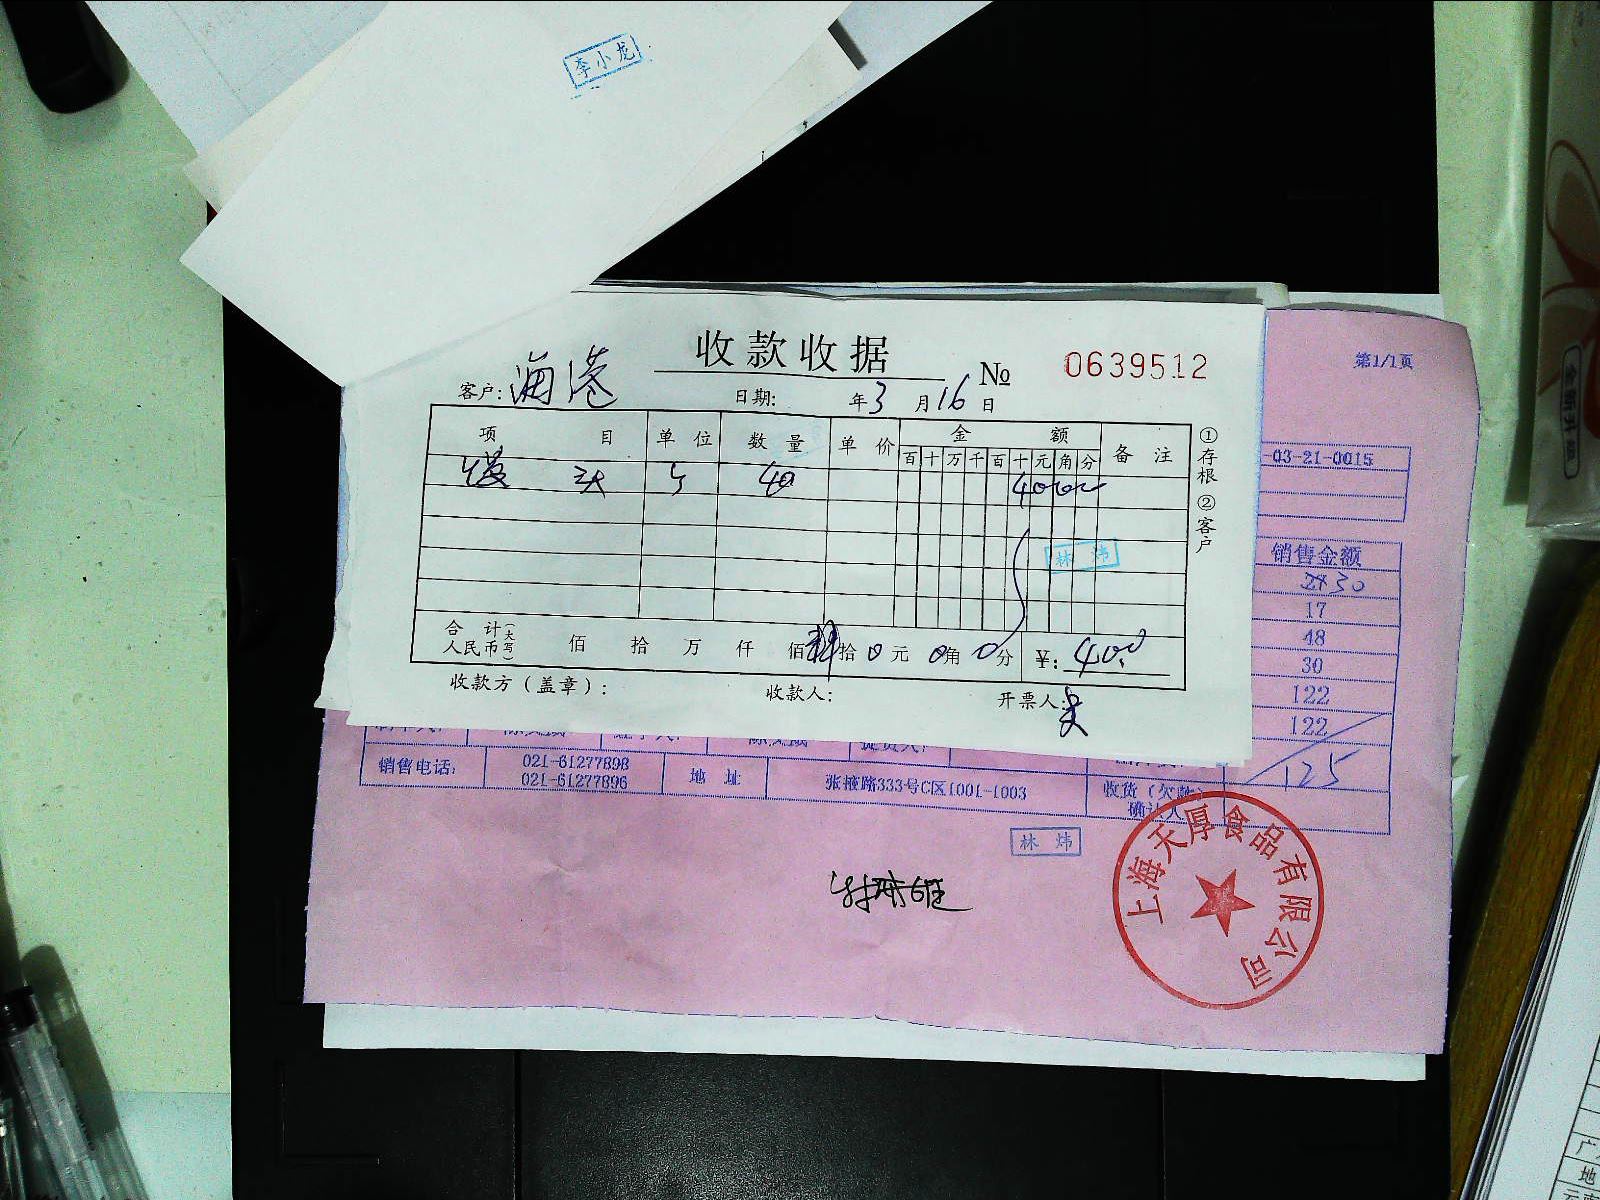 李小龙
收款收据
№ 0639512
客户: 海港 日期: 年3月16日
项目 单位 数量 单价 金额 备注
百十万千百十元角分
馒头 40 4000
林炜
合计人民币(大写) 佰 拾 万 仟 佰 肆拾0元0角0分 ¥: 40.00
收款方(盖章): 收款人: 开票人:
①存根 ②客户
第1/1页
-03-21-0015
销售金额
30
17
48
30
122
122
125
销售电话: 021-61277898 地址 张掖路333号C区1001-1003 收货(欠款)
021-61277896 确认人
林炜
上海天厚食品有限公司